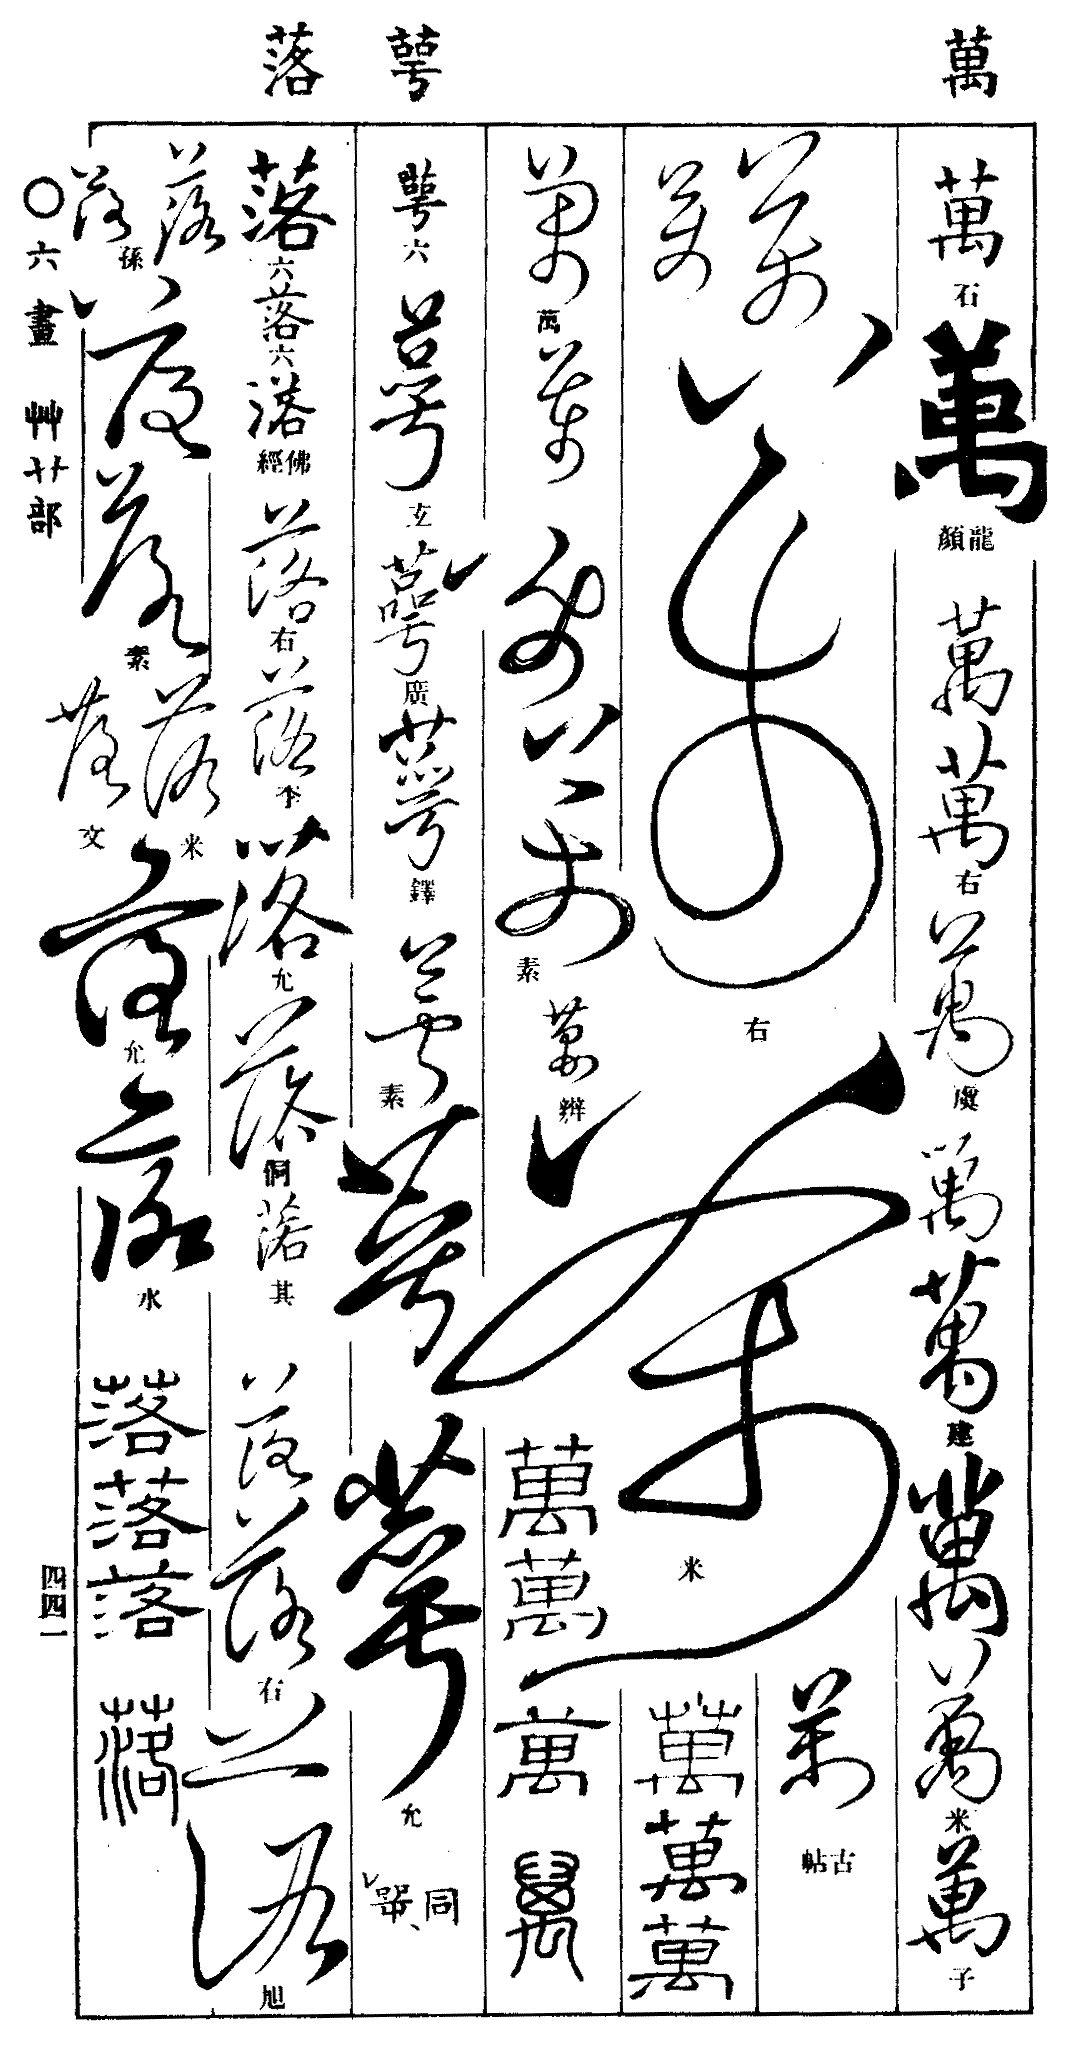 萬 萼 落
萬 石 萬 龍顏 萬 萬 右 萬 虞 萬 萬 建 萬 萬 米 萬 子
萬 萬 右 萬 米 萬 古帖
萬 萬 萬
萬 萬 萬 萬 素 萬 辨 萬 萬 萬 萬
萼 六 萼 玄 萼 廣 萼 鐸 萼 素 萼 萼 允 同
落 六 落 六 落 佛經 落 右 落 落 允 落 落 其 落 落 右 落 旭
落 落 孫 落 落 素 落 米 落 文 落 允 落 水 落 落 落 落
○六畫 艸艹部
四四一